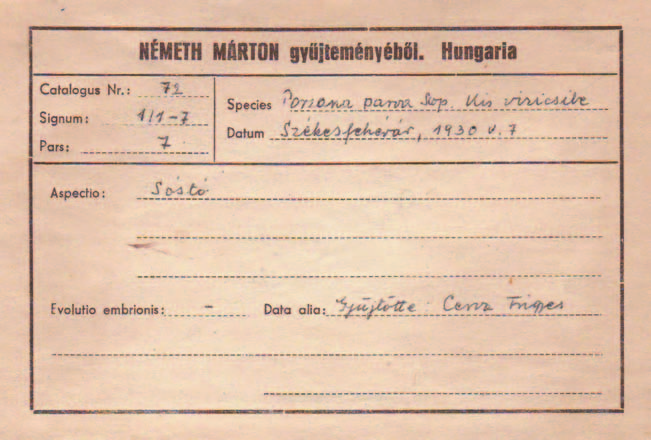 NÉMETH MÁRTON gyűjteményéből. Hungaria
Catalogus Nr.: 72
Signum: 1/1-7
Pars: 7
Species Porzana parva Scop. Kis vizicsibe
Datum Székesfehérvár, 1930 V. 7
Aspectio: Sóstó
Evolutio embrionis: - Data alia: Gyűjtötte Cerva Frigyes